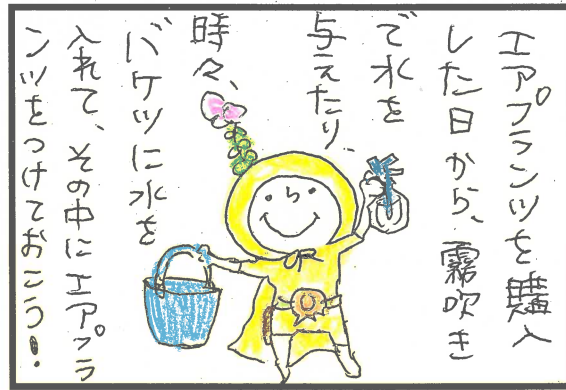 エアプランツを購入
した日から、霧吹き
で水を
与えたり、
時々、
バケツに水を
入れて、その中にエアプラ
ンツをつけておこう!